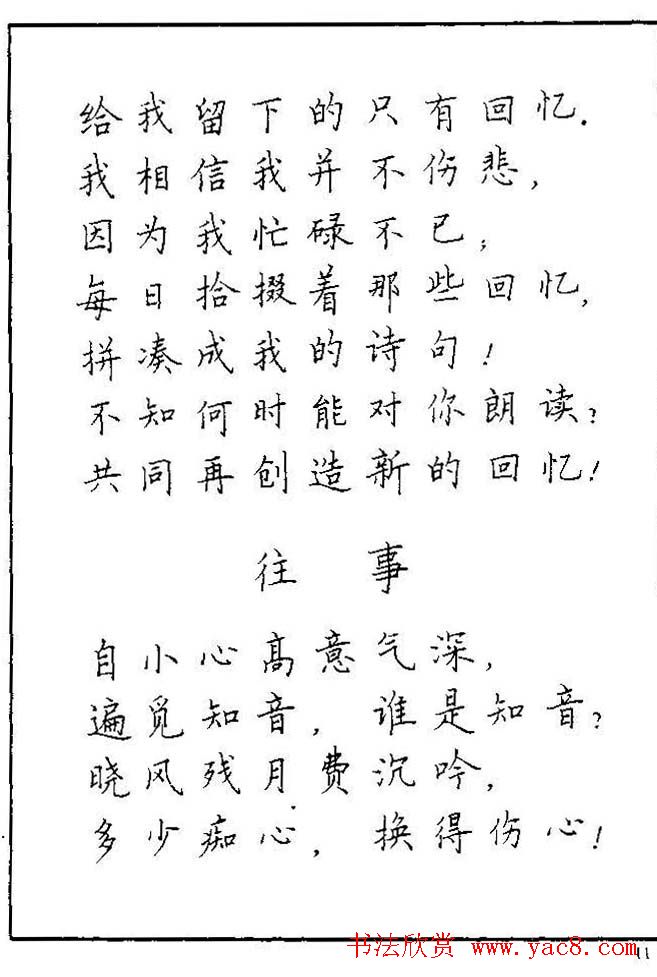 给我留下的只有回忆.
我相信我并不伤悲,
因为我忙碌不已;
每日拾掇着那些回忆,
拼凑成我的诗句!
不知何时能对你朗读?
共同再创造新的回忆!
往 事
自小心高意气深,
遍觅知音, 谁是知音?
晓风残月费沉吟,
多少痴心, 换得伤心!
书法欣赏 www.yac8.com
11